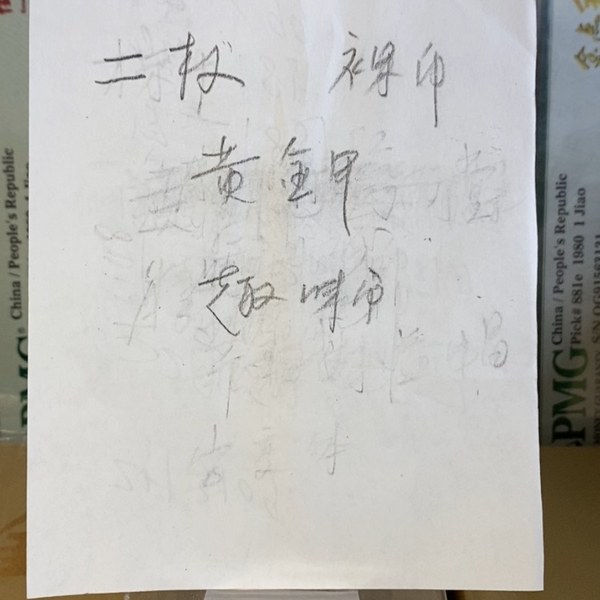 二枚 裸币
黄金甲
趣味币
PMG® China / People's Republic
PMG China / People's Republic
Pick# 881e 1980 1 Jiao